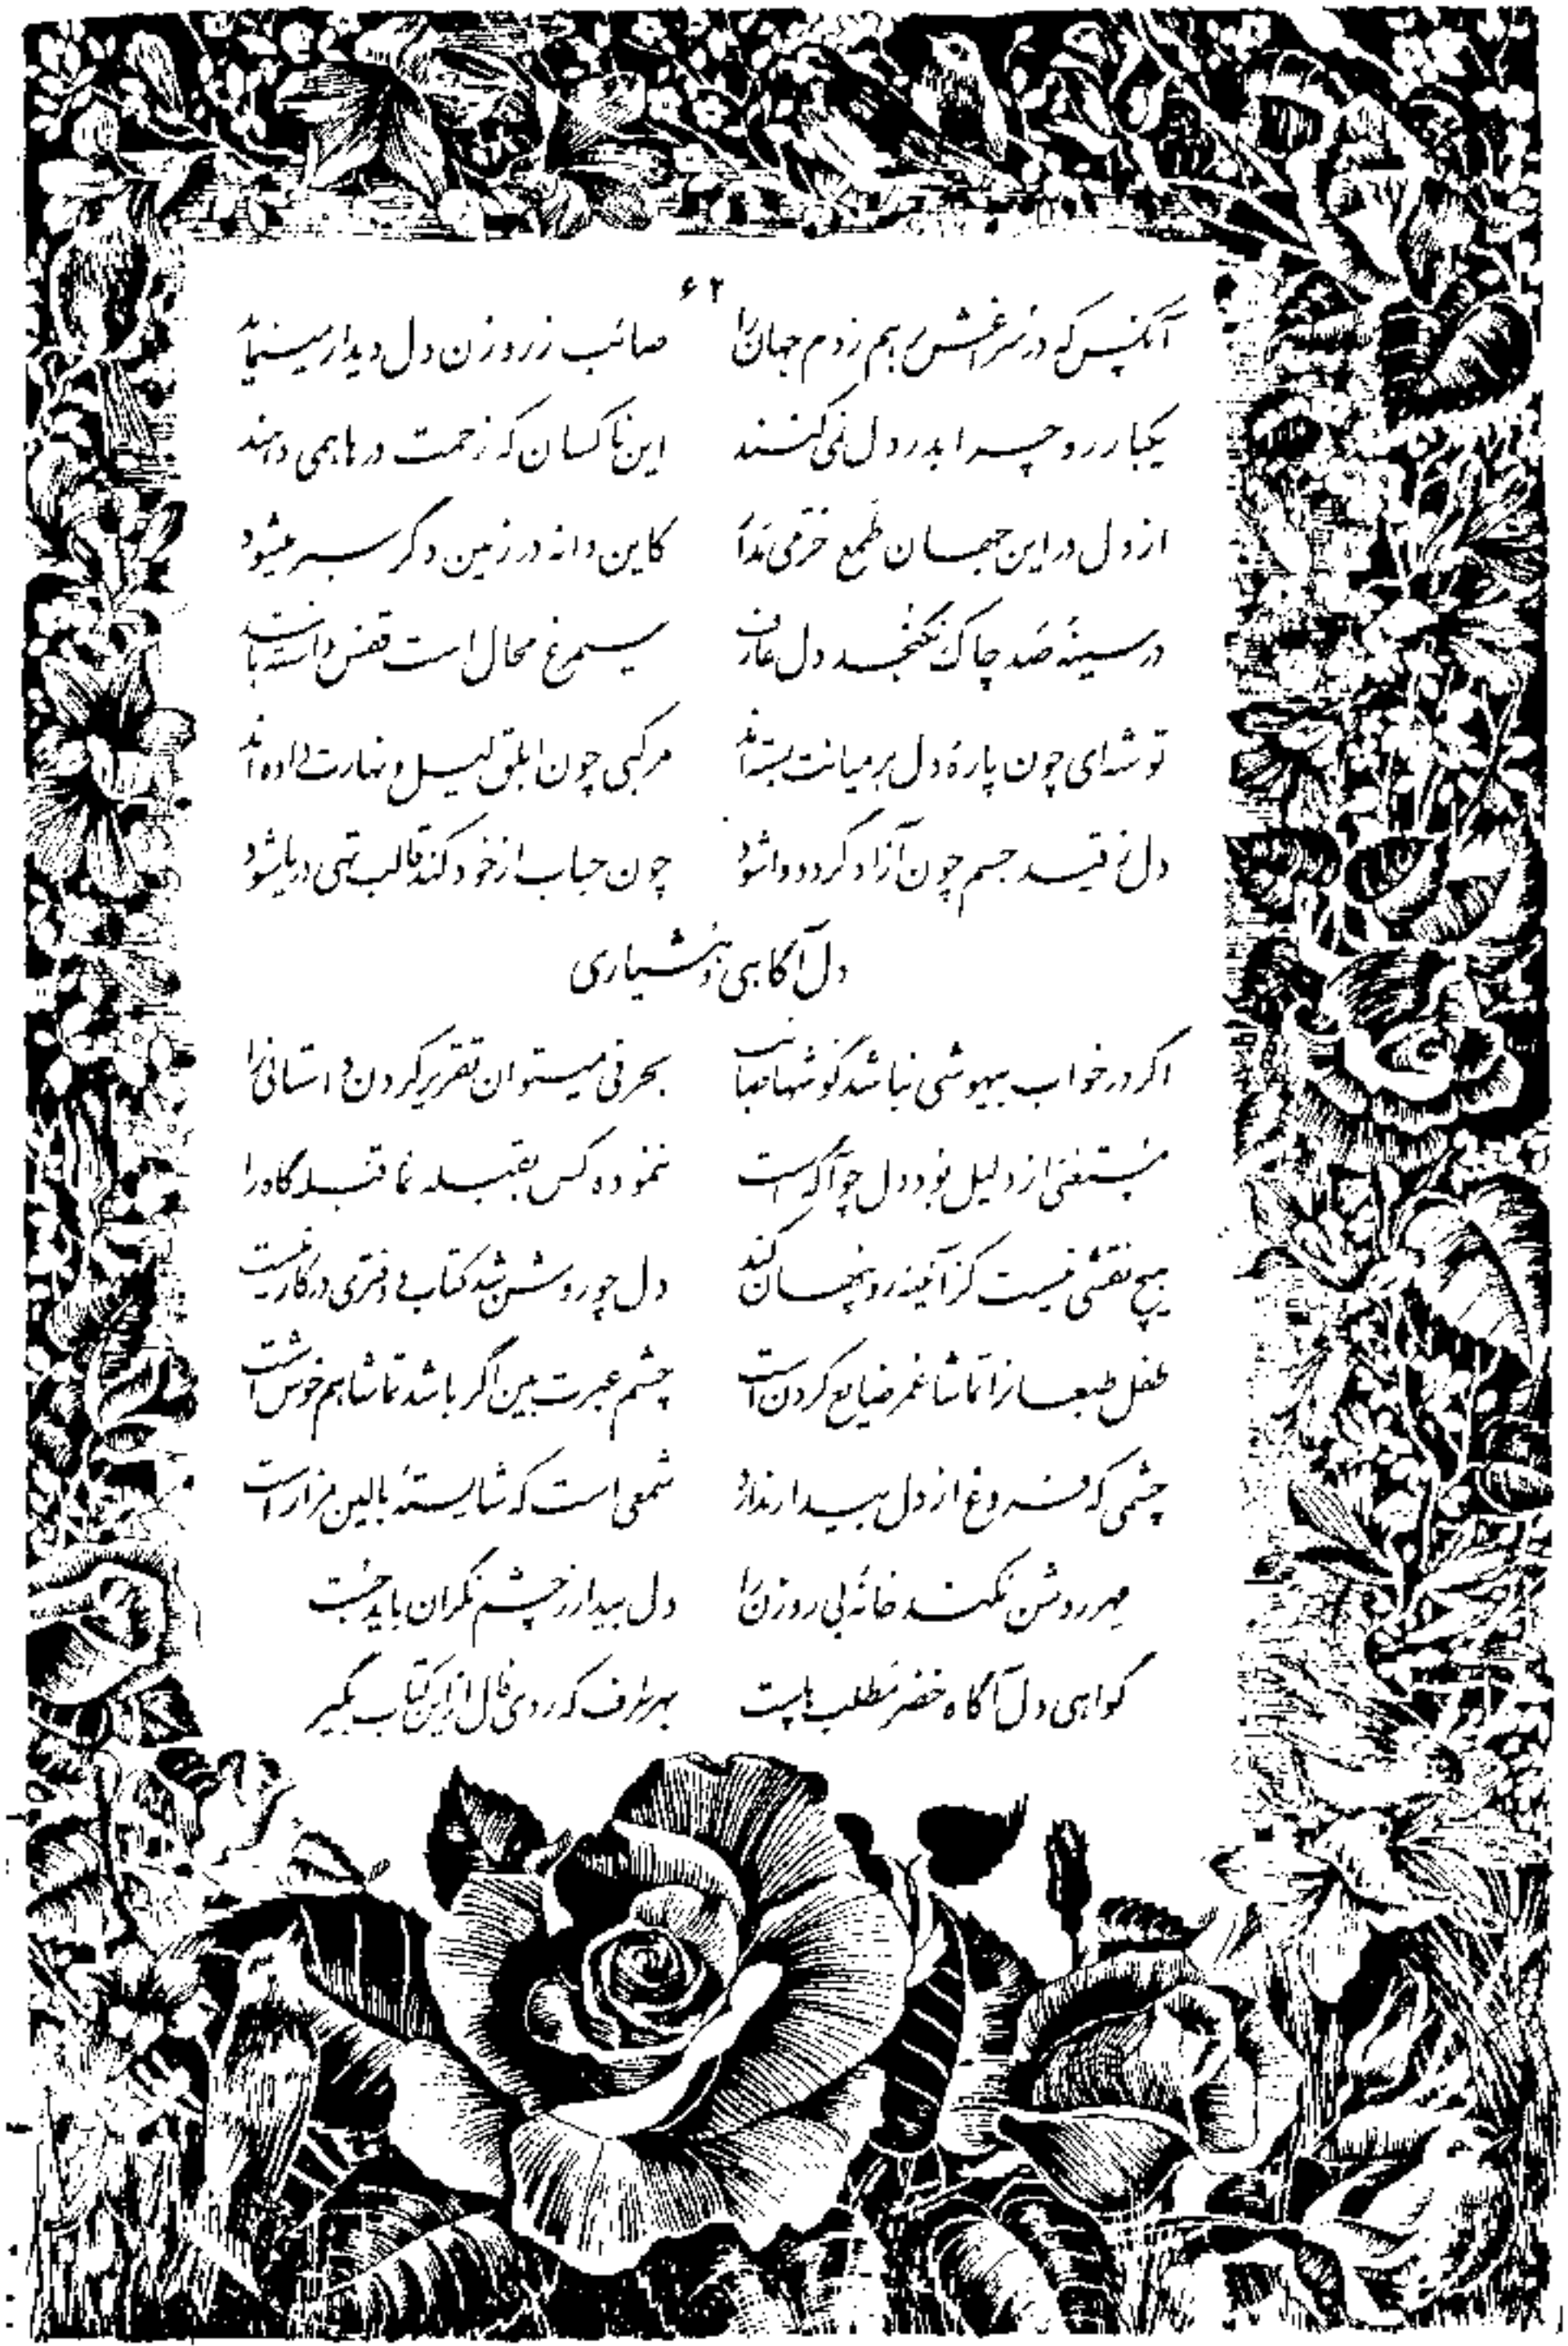 ۶۲
آنکس که در سراغش بر هم زدم جهان را صائب ز روزن دل دیدار مینماید
یکبار رو چرا بدر دل نمی کنند این ناکسان که زحمت درها همی دهند
از دل در این جهان طمع خرّمی مدار کاین دانه در زمین دگر سبز میشود
در سینهٔ صد چاک نگنجد دل عارف سیمرغ محال است قفس داشته باشد
توشه ای چون پارهٔ دل بر میانت بسته اند مرکبی چون ابلق لیل و نهارت داده اند
دل ز قید جسم چون آزاد گردد وا شود چون حباب از خود کند قالب تهی دریا شود
دل آگاهی و هشیاری
اگر در خواب بیهوشی نباشد گوشها صائب بحرفی میتوان تقریر کردن داستانی را
مستغنی از دلیل بود دل چو آگه است ننموده کس بقبله نما قبله گاه را
هیچ نقشی نیست کز آئینه رو پنهان کند دل چو روشن شد کتاب و دفتری در کار نیست
طفل طبعان را تماشا عمر ضایع کردن است چشم عبرت بین اگر باشد تماشا هم خوش است
چشمی که فروغ از دل بیدار ندارد شمعی است که شایستهٔ بالین مزار است
مهر روشن نکند خانهٔ بی روزن را دل بیدار ز چشم نگران باید جست
گواهی دل آگاه خضر مطلب ماست بهر طرف که روی فال از این کتاب بگیر